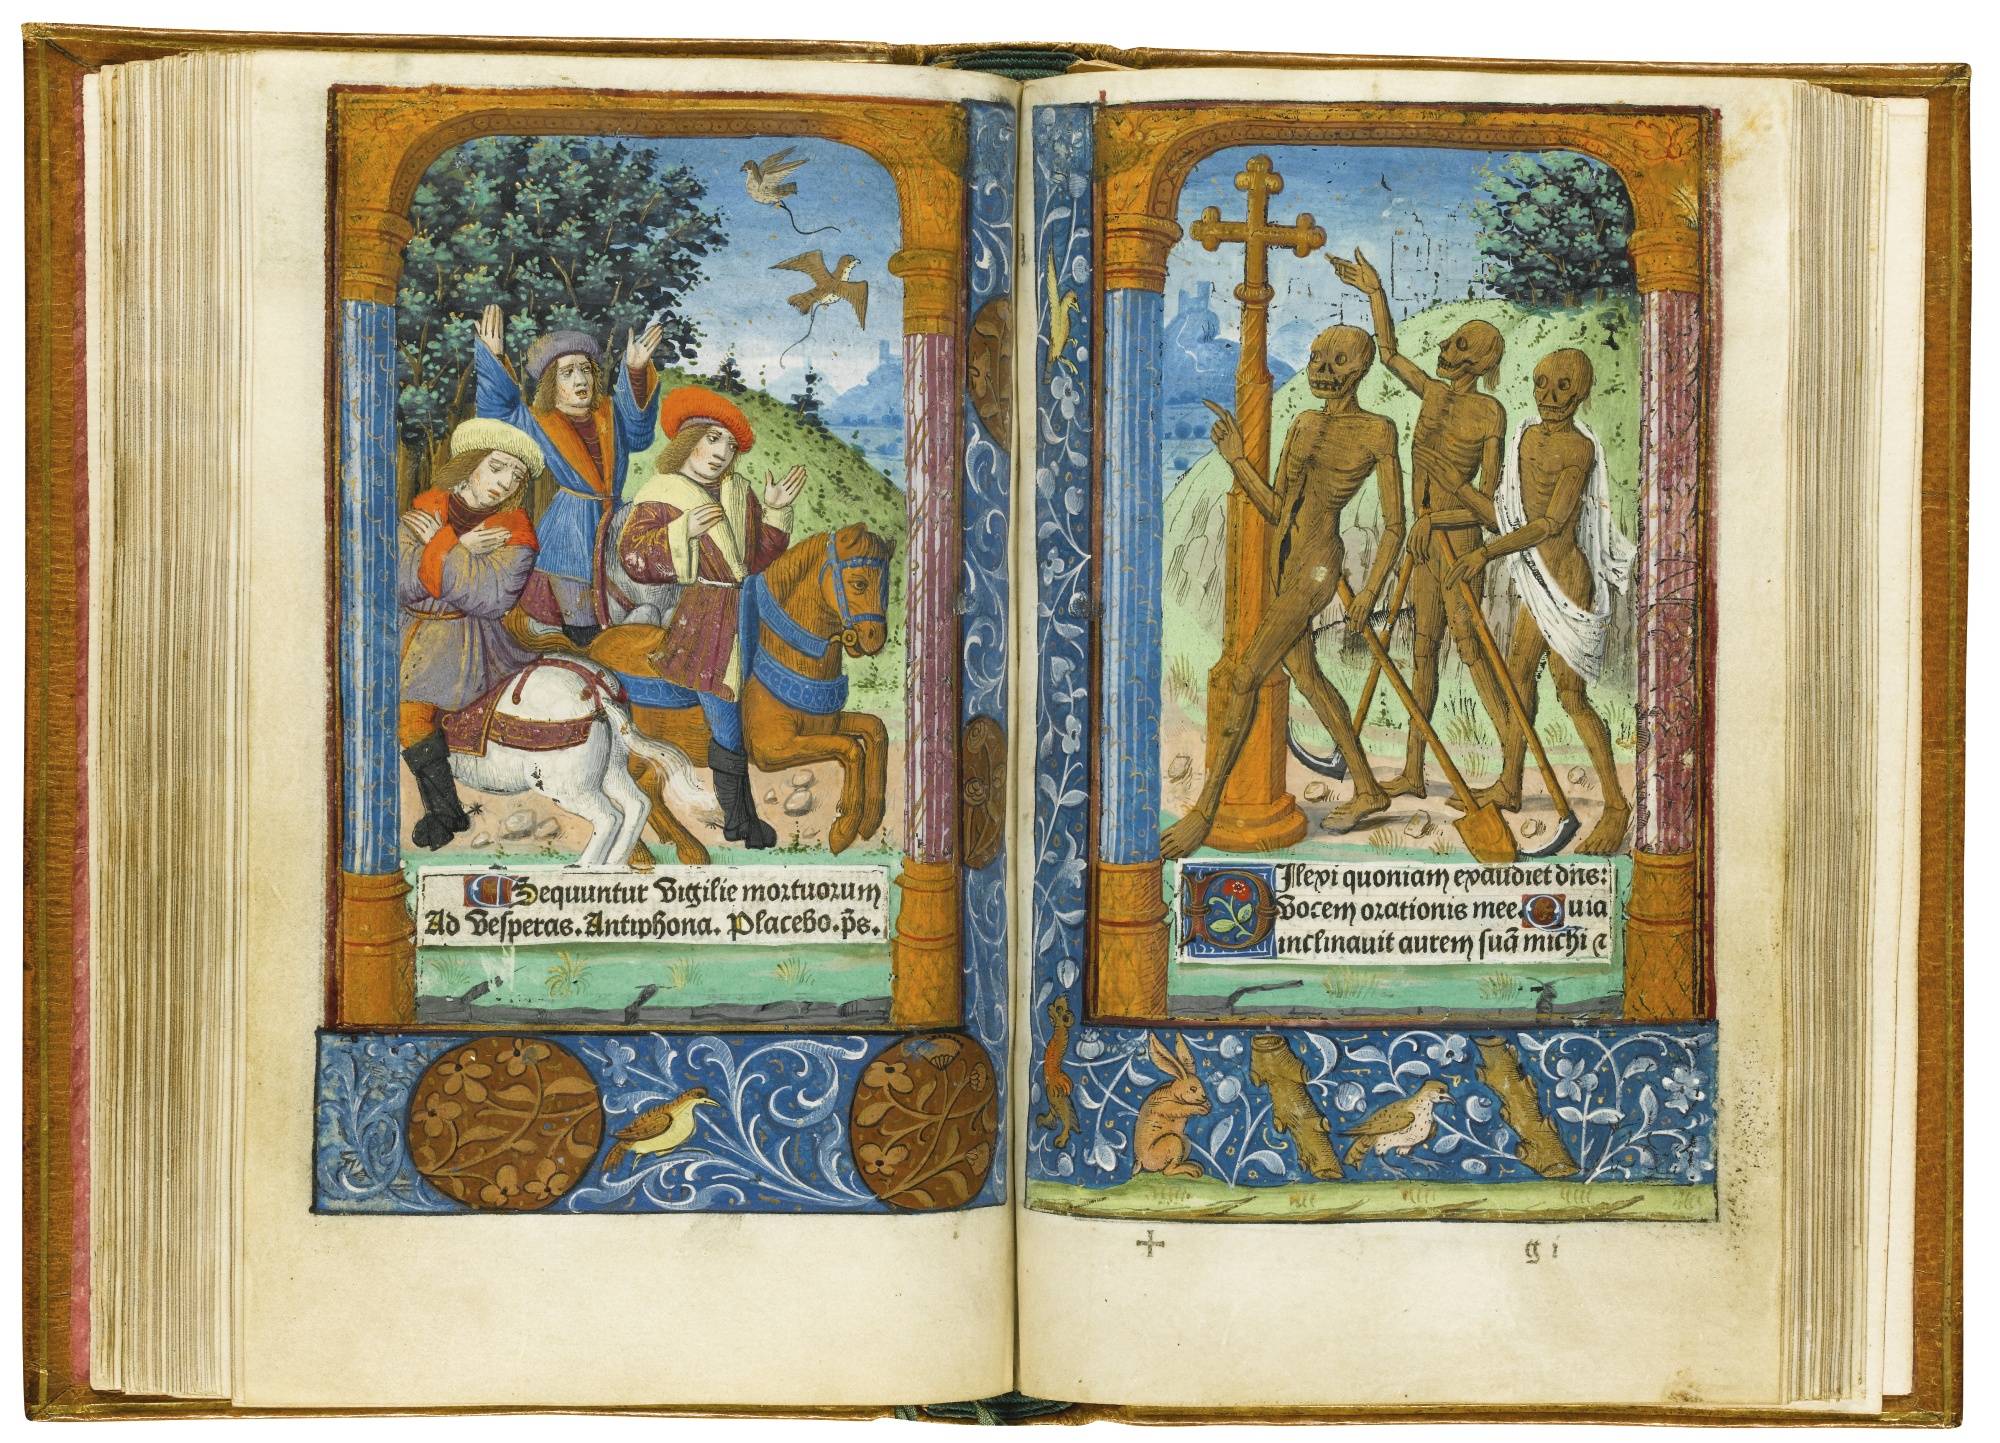 Sequuntur Vigilie mortuorum
Ad Vesperas. Antiphona. Placebo. p̄s.
Dilexi quoniam exaudiet dn̄s:
vocem orationis mee. Quia
inclinauit aurem suā michi ⁊
+ g i